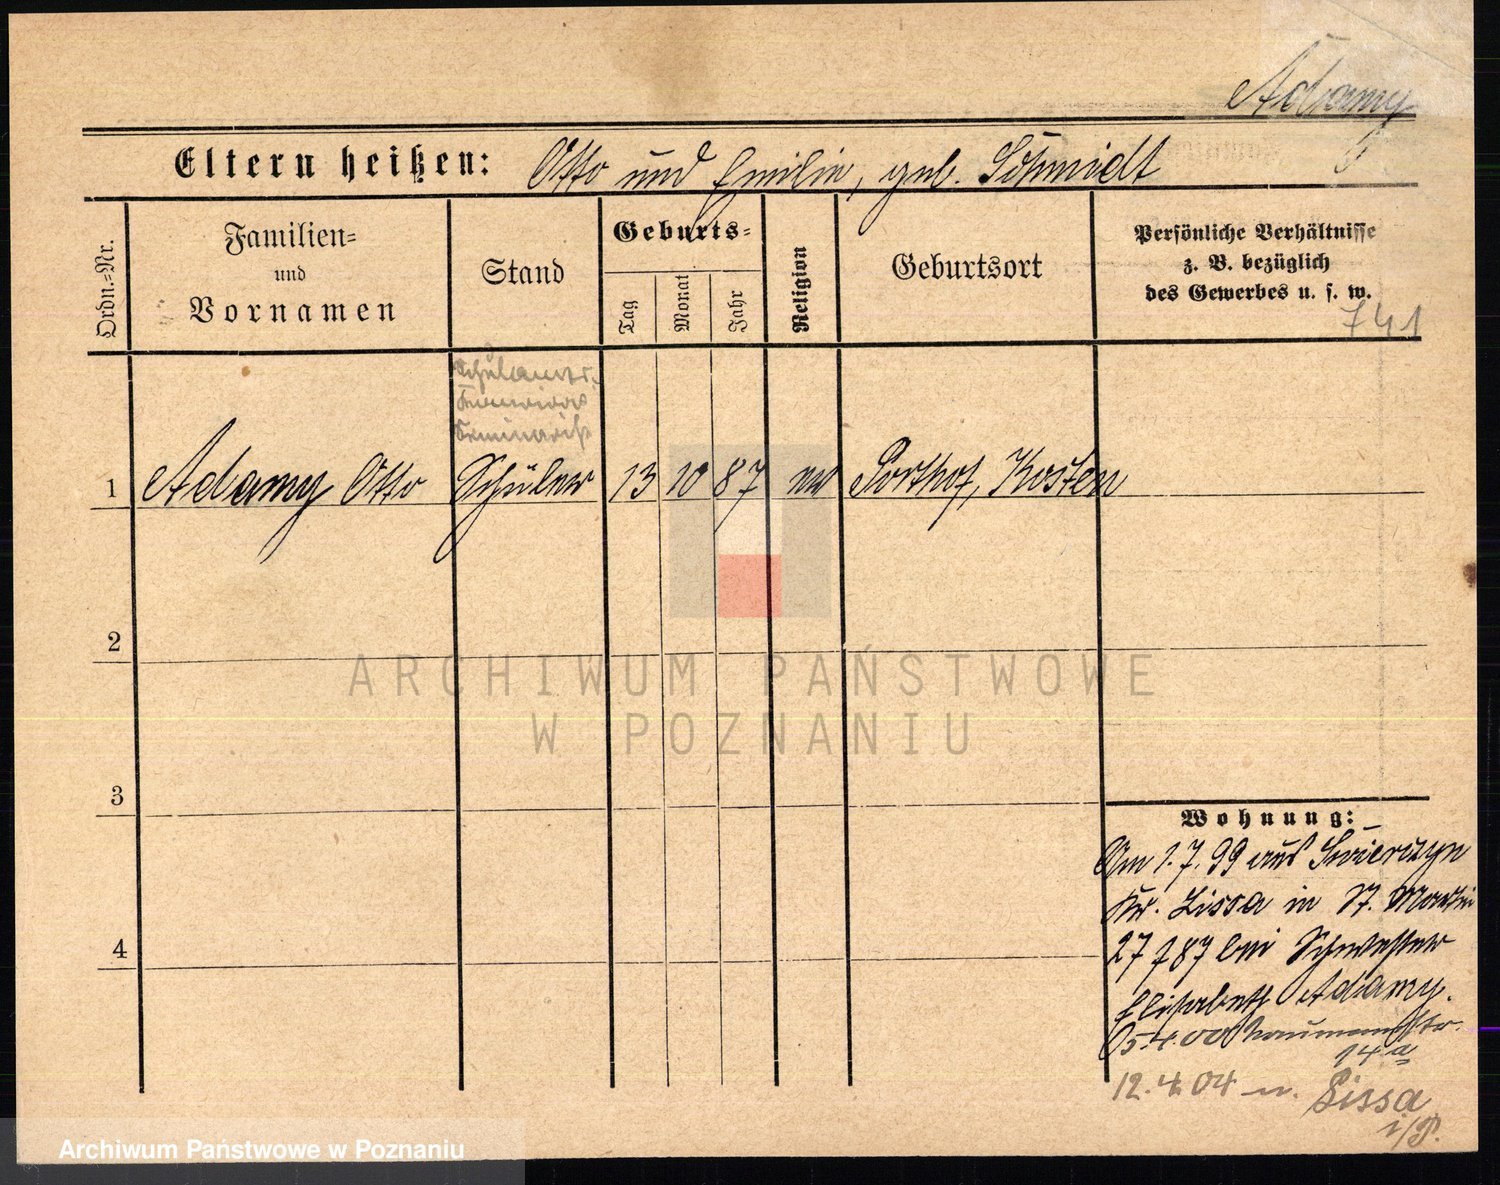 Adamy
Eltern heißen: Otto und Emilie, geb. Schmidt
Ordn.=Nr.
Familien=
und
Vornamen
Stand
Geburts=
Tag
Monat
Jahr
Religion
Geburtsort
Persönliche Verhältnisse
z. B. bezüglich
des Gewerbes u. s. w.
741
Seminarist
1 Adamy Otto Schüler 13 10 87 ev Posthof, Kosten
2
ARCHIWUM PAŃSTWOWE
W POZNANIU
3
Wohnung:
Am 1.7.99 aus Swierczyn
Kr. Lissa in St. Martin
4
27 / 87 bei Schwester
Elisabeth Adamy.
5.4.00 Naumannstr.
14a
12.4.04 n. Lissa
i/P.
Archiwum Państwowe w Poznaniu